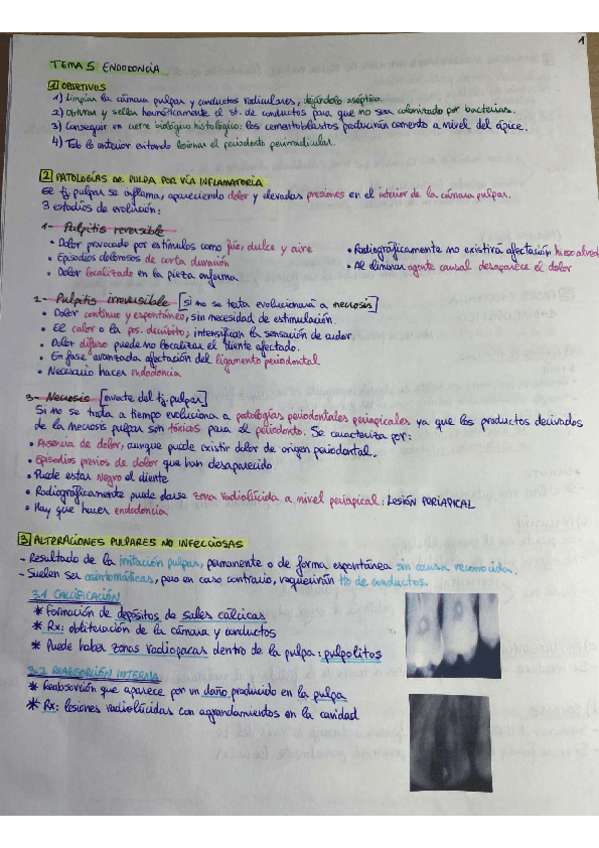 1
TEMA 5 ENDODONCIA
1 OBJETIVOS
1) Limpiar la cámara pulpar y conductos radiculares, dejándolo aséptico.
2) Obturar y sellar herméticamente el st. de conductos para que no sea colonizado por bacterias.
3) Conseguir un cierre biológico histológico: los cementoblastos producirán cemento a nivel del ápice.
4) Todo lo anterior evitando lesionar el periodonto perirradicular.
2 PATOLOGÍAS DE PULPA POR VÍA INFLAMATORIA
El tj pulpar se inflama, apareciendo dolor y elevadas presiones en el interior de la cámara pulpar.
3 estadios de evolución:
1- Pulpitis reversible
• Dolor provocado por estímulos como frío, dulce y aire
• Episodios dolorosos de corta duración
• Dolor localizado en la pieza enferma
• Radiográficamente no existirá afectación hueso alveol
• Al eliminar agente causal desaparece el dolor
2- Pulpitis irreversible [si no se trata evolucionará a necrosis]
• Dolor continuo y espontáneo, sin necesidad de estimulación.
• El calor o la pos. decúbito; intensifican la sensación de dolor.
• Dolor difuso puede no localizar el diente afectado.
• En fase avanzada afectación del ligamento periodontal
• Necesario hacer endodoncia
3- Necrosis [muerte del tj. pulpar]
Si no se trata a tiempo evoluciona a patologías periodontales periapicales ya que los productos derivados
de la necrosis pulpar son tóxicos para el periodonto. Se caracteriza por:
• Ausencia de dolor, aunque puede existir dolor de origen periodontal.
• Episodios previos de dolor que han desaparecido
• Puede estar negro el diente
• Radiográficamente puede darse zona radiolúcida a nivel periapical: LESIÓN PERIAPICAL
• Hay que hacer endodoncia
3 ALTERACIONES PULPARES NO INFECCIOSAS
- Resultado de la irritación pulpar, permanente o de forma espontánea sin causa reconocida.
- Suelen ser asintomáticas, pero en caso contrario, requerirán tto de conductos.
3.1 CALCIFICACIÓN
* Formación de depósitos de sales cálcicas
* Rx: obliteración de la cámara y conductos
* Puede haber zonas radiopacas dentro de la pulpa: pulpolitos
3.2 REABSORCIÓN INTERNA
* Reabsorción que aparece por un daño producido en la pulpa
* Rx: lesiones radiolúcidas con agrandamientos en la cavidad